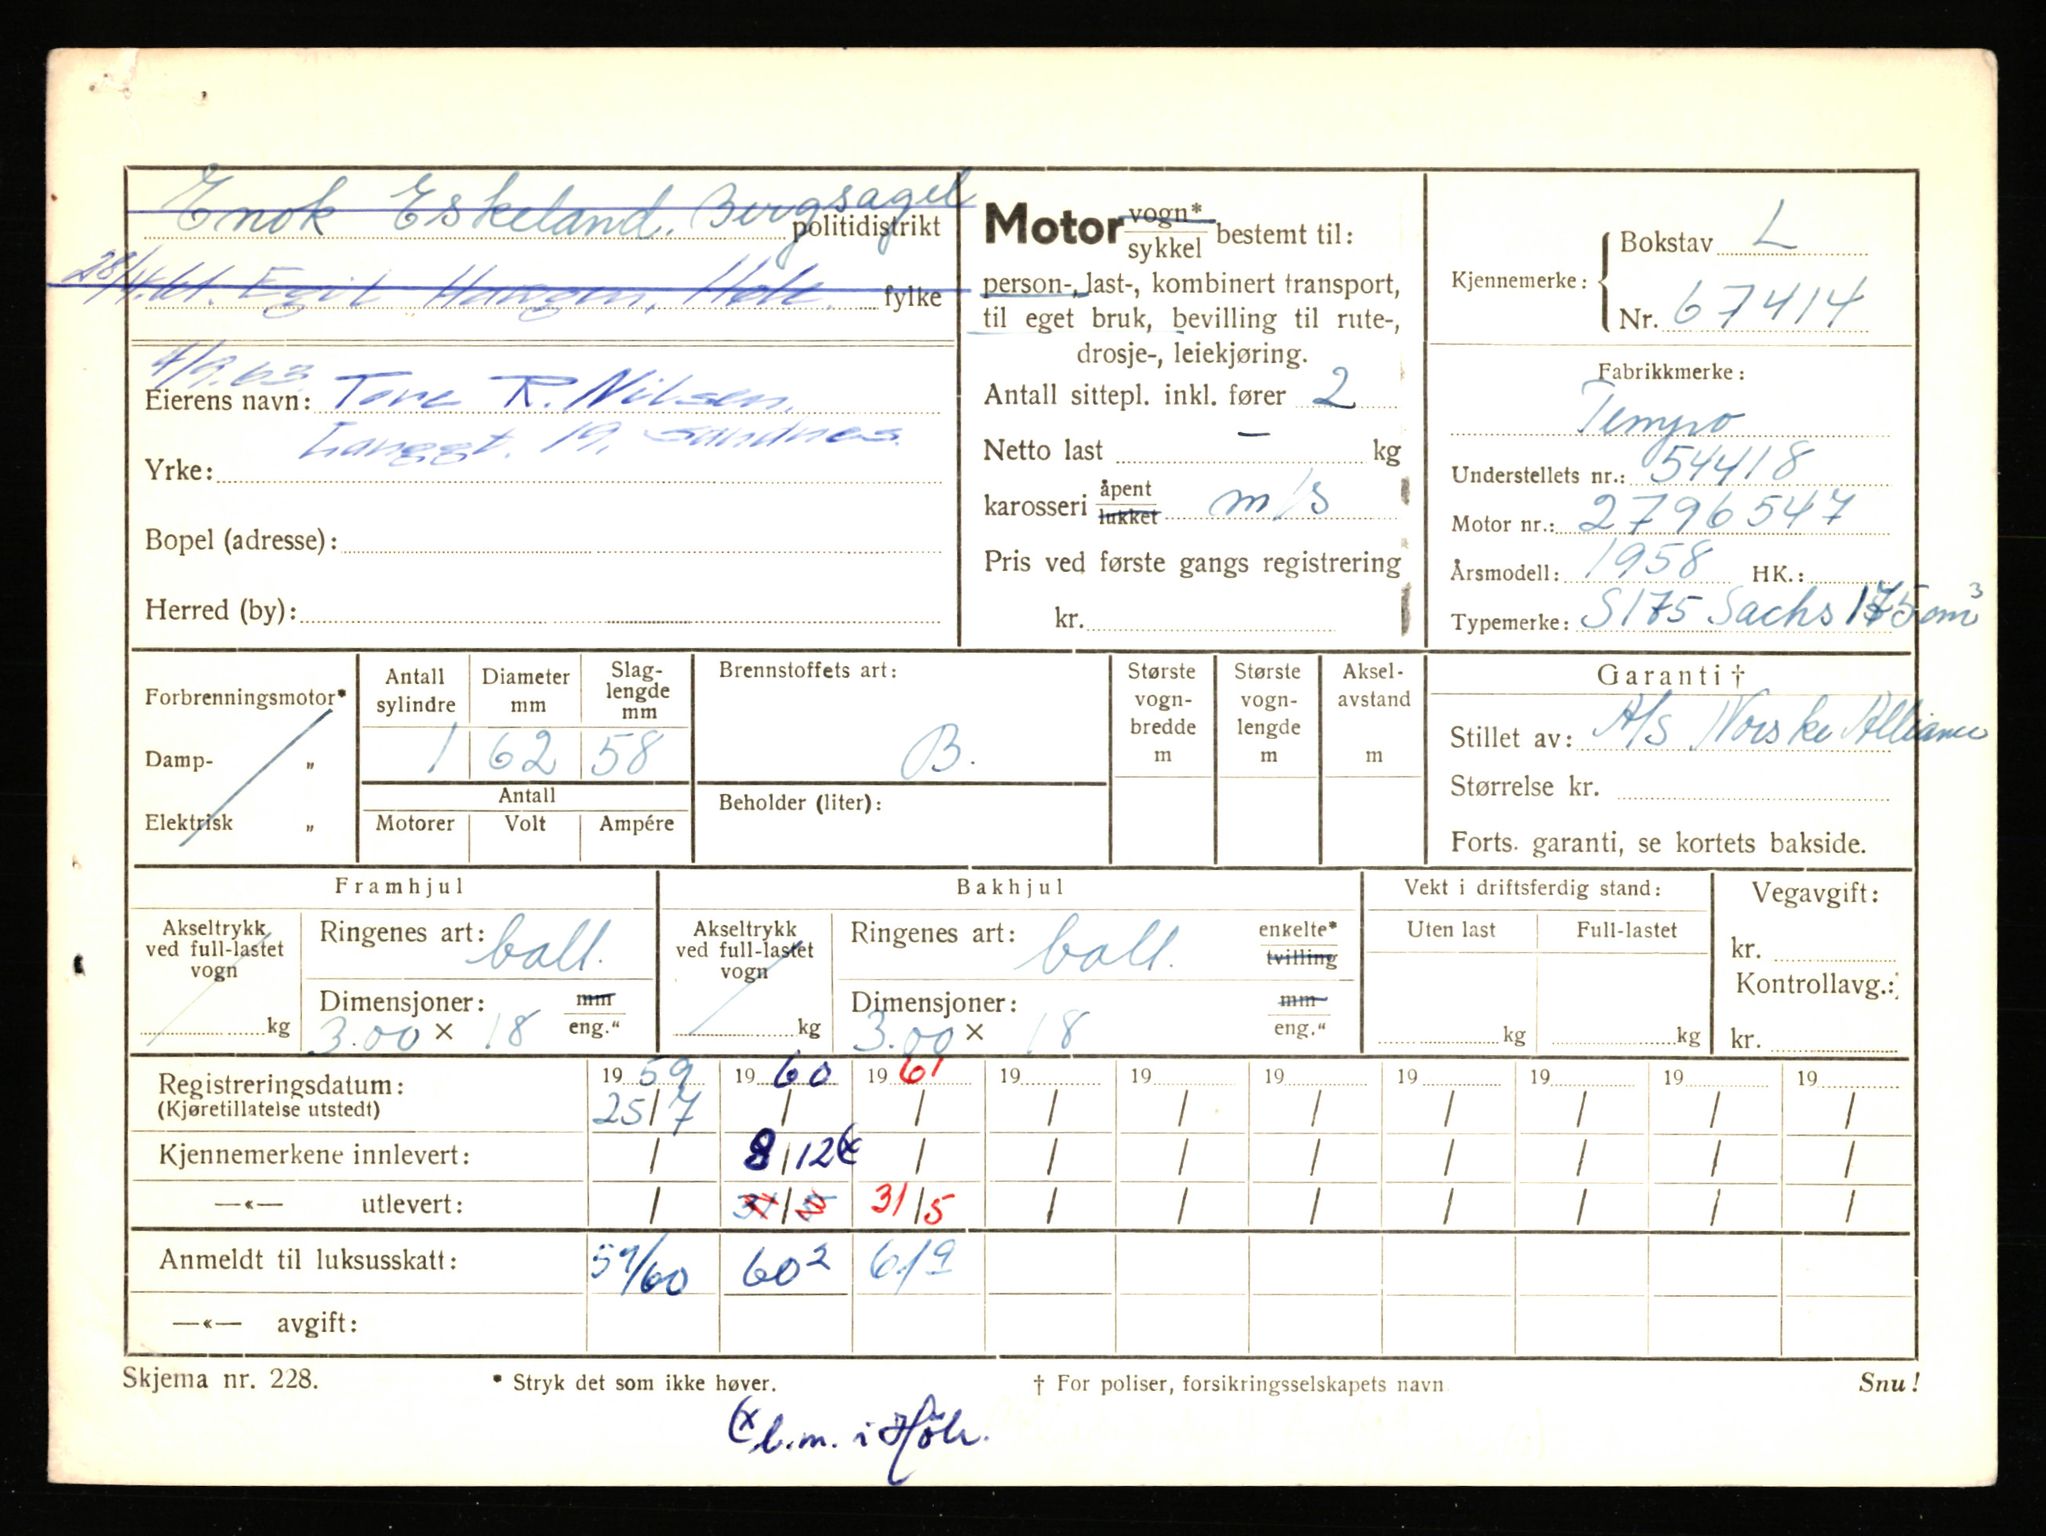 Enok Eskeland. Bergsagel
politidistrikt
28/4.61. Egil Haugen, Høle.
fylke
4/9.63.
Eierens navn: Tore R. Nilsen.
Langgt. 19, Sandnes.
Yrke:
Bopel (adresse):
Herred (by):
Motor vogn* sykkel bestemt til:
person-, last-, kombinert transport,
til eget bruk, bevilling til rute-,
drosje-, leiekjøring.
Antall sittepl. inkl. fører 2
Netto last — kg
karosseri åpent lukket m/s
Pris ved første gangs registrering
kr.
Kjennemerke: Bokstav L
Nr. 67414
Fabrikkmerke:
Tempo
Understellets nr.: 54418
Motor nr.: 2796547
Årsmodell: 1958 HK.:
Typemerke: S175 Sachs 175 cm³
Forbrenningsmotor*
Damp- „
Elektrisk „
Antall sylindre 1
Diameter mm 62
Slag-lengde mm 58
Antall
Motorer Volt Ampére
Brennstoffets art:
B.
Beholder (liter):
Største vogn-bredde m
Største vogn-lengde m
Aksel-avstand m
Garanti †
Stillet av: A/S Norske Alliance
Størrelse kr.
Forts. garanti, se kortets bakside.
Framhjul
Akseltrykk ved full-lastet vogn
kg
Ringenes art: ball.
Dimensjoner: mm eng."
3.00 × 18
Bakhjul
Akseltrykk ved full-lastet vogn
kg
Ringenes art: ball. enkelte* tvilling
Dimensjoner: mm eng."
3.00 × 18
Vekt i driftsferdig stand:
Uten last Full-lastet
kg kg
Vegavgift:
kr.
Kontrollavg.:
kr.
Registreringsdatum: 19 59 19 60 19 61 19 19 19 19 19 19 19
(Kjøretillatelse utstedt) 25/7 / / / / / / / / /
Kjennemerkene innlevert: / 8/12 (x / / / / / / / /
—«— utlevert: / 31/5 31/5 / / / / / / /
Anmeldt til luksusskatt: 59/60 60² 61 9
—«— avgift:
Skjema nr. 228. * Stryk det som ikke høver. † For poliser, forsikringsselskapets navn Snu!
(x b.m. i Höle.